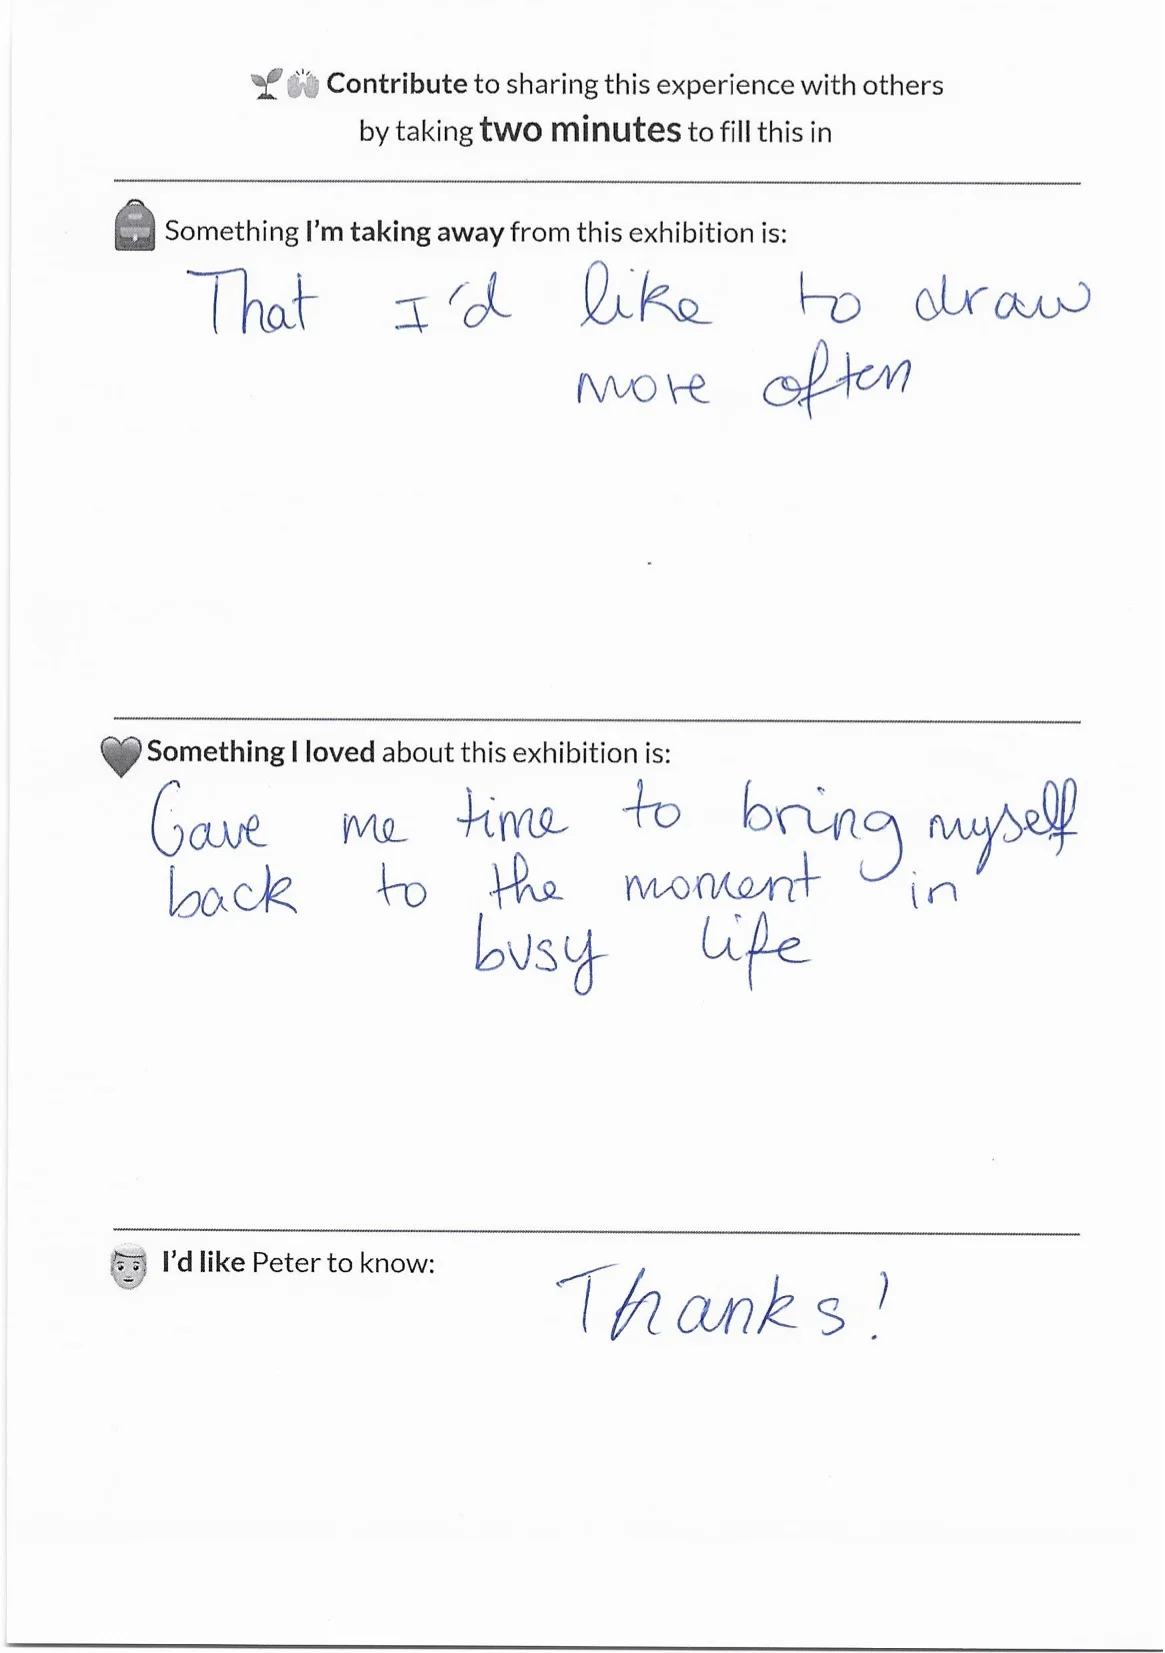 Contribute to sharing this experience with others
by taking two minutes to fill this in
Something I'm taking away from this exhibition is:
That I'd like to draw
more often
Something I loved about this exhibition is:
Gave me time to bring myself
back to the moment in
busy life
I'd like Peter to know:
Thanks!